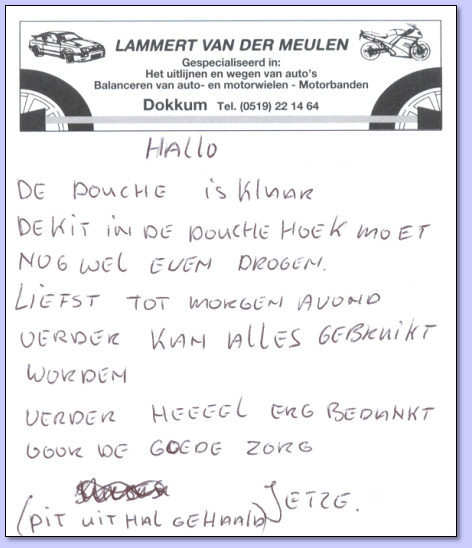 LAMMERT VAN DER MEULEN
Gespecialiseerd in:
Het uitlijnen en wegen van auto's
Balanceren van auto- en motorwielen - Motorbanden
Dokkum Tel. (0519) 22 14 64
HALLO
DE DOUCHE is KLAAR
DE KIT IN DE DOUCHE HOEK MOET
NOG WEL EVEN DROGEN.
LIEFST TOT MORGEN AVOND
VERDER KAN ALLES GEBRUIKT
WORDEN
VERDER HEEEEL ERG BEDANKT
VOOR DE GOEDE ZORG
JETZE.
(PIT UIT HAL GEHAALD)